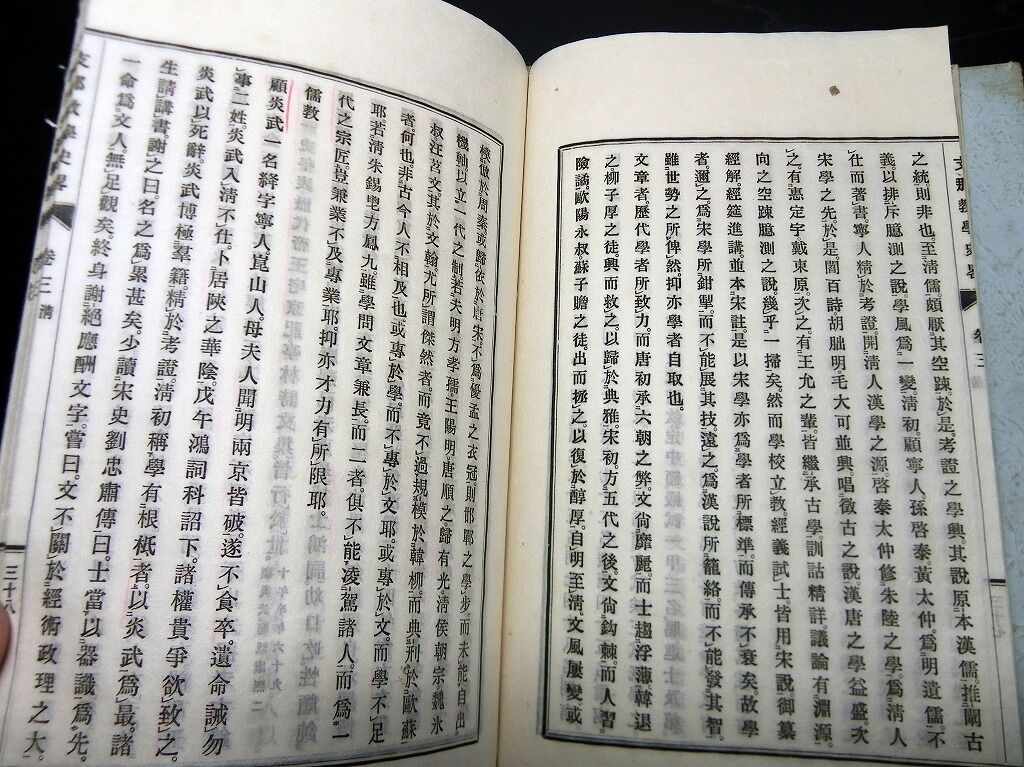 支那教學史畧 卷三 清
之統則非也。至清儒頗厭其空踈。於是考證之學興。其說原本漢儒。推闡古
義。以排斥臆測之說。學風爲一變。清初顧寧人。孫啓泰。黃太仲。爲明遺儒。不
仕而著書。寧人精於考證。開清人漢學之源。啓泰太仲修朱陸之學。爲清人
宋學之先。於是閻百詩胡朏明毛大可並興。唱徵古之說。漢唐之學益盛。次
之有惠定宇戴東原。次之。有王允之輩。皆繼承古學。訓詁精詳。議論有淵源。
向之空踈臆測之說。幾乎一掃矣。然而學校立敎。經義試士。皆用宋說。御纂
經解。經筵進講。並本宋註。是以宋學亦爲學者所標準。而傳承不衰矣。故學
者邇之。爲宋學所鉗掣。而不能展其技。遠之。爲漢說所籠絡。而不能發其智。
雖世勢之所俾然。抑亦學者自取也。
文章者。歷代學者所致力。而唐初承六朝之弊。文尙靡麗。而士趨浮薄。韓退
之柳子厚之徒。興而救之。以歸於典雅。宋初。方五代之後。文尙鈎棘。而人習
險譎。歐陽永叔蘇子瞻之徒。出而極之。以復於醇厚。自明至清。文風屢變。或
模倣於周秦。或歸依於唐宋。不爲優孟之衣冠。則邯鄲之學步。而未能自出
機軸以立一代之制。若夫明方孝孺。王陽明。唐順之。歸有光。清侯朝宗魏氷
叔汪苕文。其於文翰。尤所謂傑然者。而竟不過規模於韓柳。而典刑於歐蘇
者。何也。非古今人不相及也。或專於學。而不專於文耶。或專於文。而學不足
耶。若清朱錫鬯方鳳九。雖學問文章兼長。而二者俱不能凌駕諸人。而爲一
代之宗匠。豈兼業不及專業耶。抑亦才力有所限耶。
儒教
顧炎武一名絳字寧人。崑山人。母夫人聞明兩京皆破。遂不食卒。遺命誡勿
事二姓。炎武入清不仕。卜居陝之華陰。戊午鴻詞科詔下。諸權貴爭欲致之。
炎武以死辭。炎武博極羣籍。精於考證。清初稱學有根柢者。以炎武爲最。諸
生請講書。謝之曰。名之爲累甚矣。少讀宋史劉忠肅傳曰。士當以器識爲先。
一命爲文人。無足觀矣。終身謝絕應酬文字。嘗曰。文不關於經術政理之大。
支那教學史畧 卷三 清
三十八